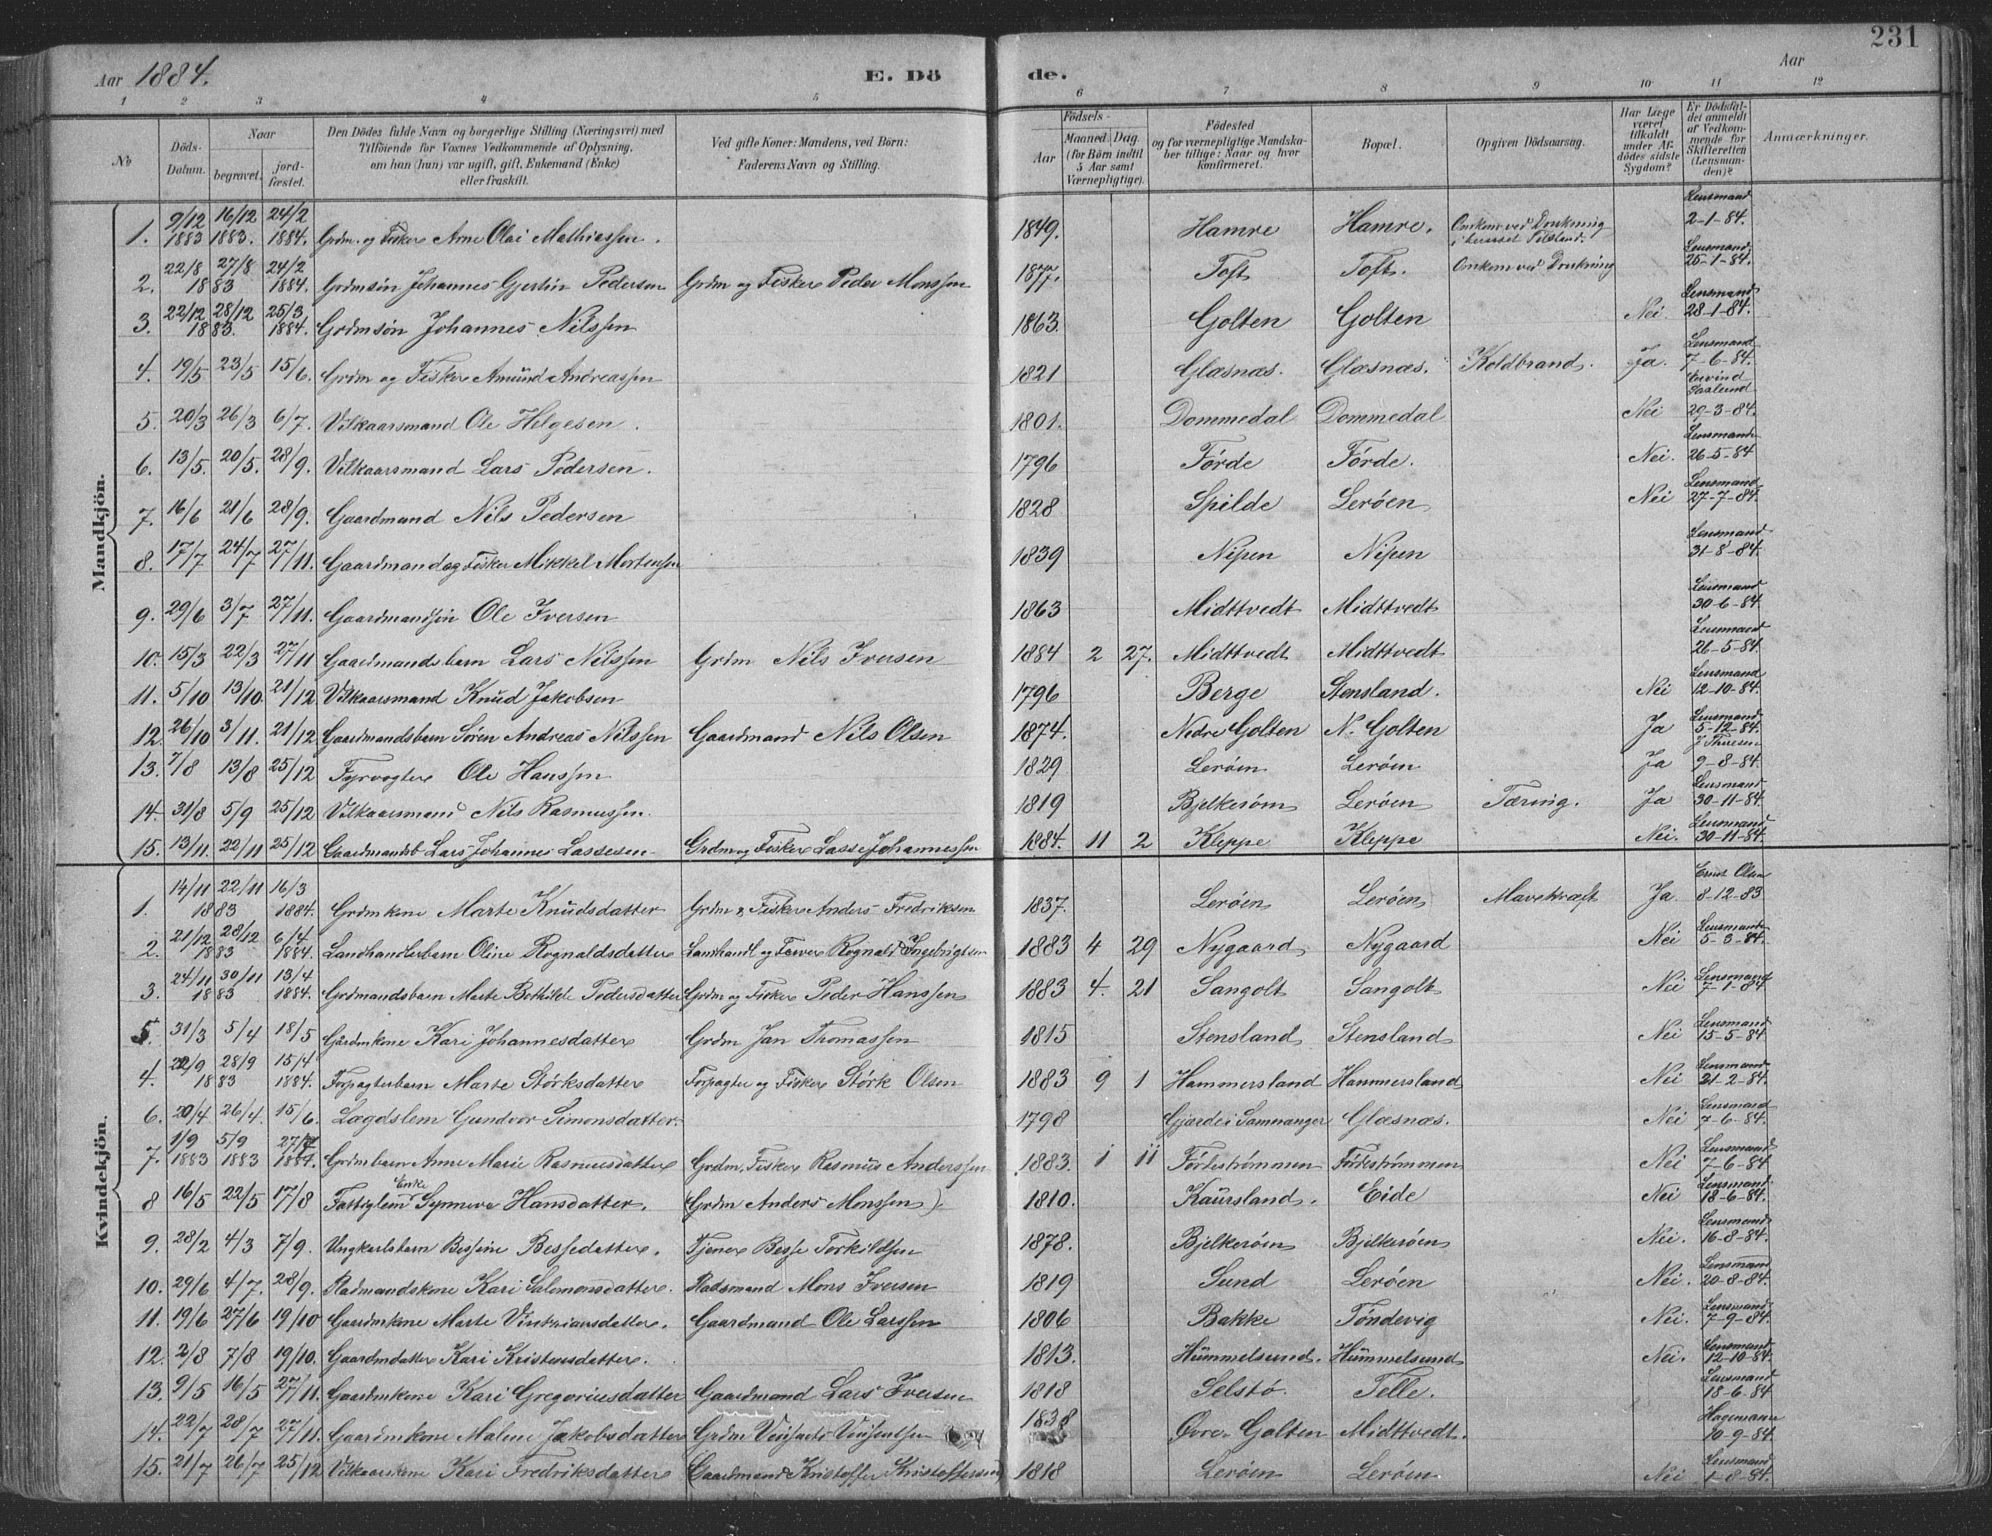 231
Aar 1884. E. Dö de. Aar
1 2 3 4 5 6 7 8 9 10 11 12
No Döds-Datum. Naar begravet. jordfæstet. Den Dödes fulde Navn og borgerlige Stilling (Næringsvei) med Tilföiende for Voxnes Vedkommende af Oplysning, om han (hun) var ugift, gift, Enkemand (Enke) eller fraskilt. Ved gifte Koner: Mandens, ved Börn: Faderens Navn og Stilling. Födsels- Aar Maaned. Dag. (for Börn indtil 5 Aar samt Værnepligtige). Födested og for værnepligtige Mandskaber tillige: Naar og hvor konfirmeret. Bopæl. Opgiven Dödsaarsag. Har Læge været tilkaldt under Afdödes sidste Sygdom? Er Dödsfaldet anmeldt af Vedkommende for Skifteretten (Lensmanden)? Anmærkninger.
Mandkjön.
1. 9/12 1883 16/12 1883. 24/2 1884. Grdm. og Fisker Arne Olai Mathiassen. 1849. Hamre Hamre. Omkom ved Drukning Lensmand 2-1-84.
2. 22/8 27/8 1883 24/2 1884. Grdmsön Johannes Gjertin Pedersen Grdm og Fisker Peder Monssen 1877. Toft Toft. Omkom ved Drukning Lensmand 25-1-84.
3. 22/12 28/12 1883. 25/3 1884. Grdmsön Johannes Nilssen 1863. Golten Golten Nei Lensmand 28-1-84.
4. 19/5 23/5 15/6. Grdm og Fisker Amund Andreassen 1821 Glæsnæs. Glæsnæs. Koldbrand. Ja. Lensmand 7-6-84.
5. 20/3 26/3 6/7. Vilkaarsmand Ole Helgesen. 1801. Dommedal Dommedal Nei 29-3-84.
6. 13/5. 20/5. 28/9. Vilkaarsmand Lars Pedersen. 1796 Förde Förde. Nei. Lensmand 26-5-84
7. 16/6 21/6 28/9. Gaardmand Nils Pedersen 1828 Spilde Leröen Nei Lensmand 27-7-84.
8. 17/7 24/7 27/11. Gaardmand og Fisker Mikkel Mortensen 1839 Nipen Nipen Lensmand 31-8-84.
9. 29/6 3/7 27/11. Gaardmandssön Ole Iversen 1863 Midttvedt Midttvedt Lensmand 30-6-84.
10. 15/3 22/3 27/11 Gaardmandsbarn Lars Nilssen Grdm Nils Iversen 1884 2 27. Midttvedt Midttvedt Lensmand 26-5-84.
11. 5/10 13/10. 21/12 Vilkaarsmand Knud Jakobsen 1796 Berge Stensland. Nei Lensmand 12-10-84.
12. 26/10 3/11. 21/12. Gaardmandsbarn Sören Andreas Nilssen Gaardmand Nils Olsen 1874. Nedre Golten N. Golten Ja Lensmand 5-12-84.
13. 7/8 13/8 25/12 Fyrvogter Ole Hanssen 1829 Leröen Leröen Ja 9-8-84.
14. 31/8 5/9 25/12 Vilkaarsmand Nils Rasmussen. 1819 Bjelkeröen Leröen Tæring. Ja Lensmand 30-11-84.
15. 13/11. 22/11 25/12 Gaardmandsb. Lars Johannes Lassesen Grdm og Fisker Lasse Johannessen 1884. 11 2 Kleppe Kleppe Nei. Lensmand 30-11-84.
Kvindekjön.
1. 14/11 22/11 1883 16/3 1884. Grdmkone Marte Knudsdatter Grdm & Fisker Anders Fredriksen 1837. Leröen Leröen Ja 8-12-83
2. 21/12 28/12 1883 6/4 1884. Landhandlerbarn Oline Rognaldsdatter Rognald Ingebrigtsen 1883 4 29 Nygaard Nygaard Nei Lensmand 5-3-84.
3. 24/11 30/11 1883 13/4 1884. Grdmandsbarn Marte Bothilde Pedersdatter Grdm og Fisker Peder Hanssen 1883 4. 21 Sangolt Sangolt Nei Lensmand 7-1-84
5. 31/3 5/4 18/5 Gårdmkone Kari Johannesdatter Grdm Jan Thomassen 1815 Stensland Stensland Nei Lensmand 15-5-84.
4. 22/9 28/9 1883 15/4 1884. Forpagterbarn Marte Störksdatter Forpagter og Fisker Störk Olsen 1883 9 1 Hammersland Hammersland Nei Lensmand 21-2-84.
6. 20/4 26/4. 15/6. Lægdslem Gundvor Simonsdatter. 1798 Gjærde i Samnanger Glæsnæs. Nei Lensmand 7-6-84.
7. 1/9 1883 5/9 1883 1884. Grdmbarn Anne Marie Rasmusdatter Grdm. Fisker Rasmus Anderssen 1883. 1 11 Fördeströmmen Fördeströmmen Nei Lensmand 7-6-84
8 16/5 22/5 17/8 Fattiglem Enke Synneve Hansdatter. (Grdm Anders Monssen). 1810. Kaursland. Eide Nei Lensmand 18-6-84.
9. 28/2 4/3 7/9. Ungkarlsbarn Bessine Bessedatter. Tjener Besse Torkildsen 1878. Bjelkeröen Bjelkeröen Nei. Lensmand 16-8-84.
10. 29/6 4/7. 28/9. Radmandskone Kari Salomonsdatter. Radsmand Mons Iversen 1819 Sund Leröen Nei. Lensmand 20-8-84.
11. 19/6 27/6 19/10 Gaardmkone Marte Gaardmand Ole Larssen 1806 Bakke Töndevig Nei. Lensmand 7-9-84.
12. 2/8 7/8 19/10. Gaardmdatter Kari Kristensdatter. 1813. Hummelsund. Hummelsund Nei. Lensmand 12-10-84.
13. 9/5 16/5 27/11. Gaardmkone Kari Gregoriusdatter Gaardmand Lars Iversen 1818 Selstö. Telle. Lensmand 18-6-84
14. 22/7 28/7 27/11. Gaardmkone Malene Jakobsdatter Grdm 1838 Övre Golten Midttvedt. 10-9-84.
15. 21/7 26/7 25/12 Vilkaarskone Kari Fredriksdatter (Gaardmand Kristoffer Kristoffersen) 1818 Leröen Leröen Nei Lensmand 1-8-84.